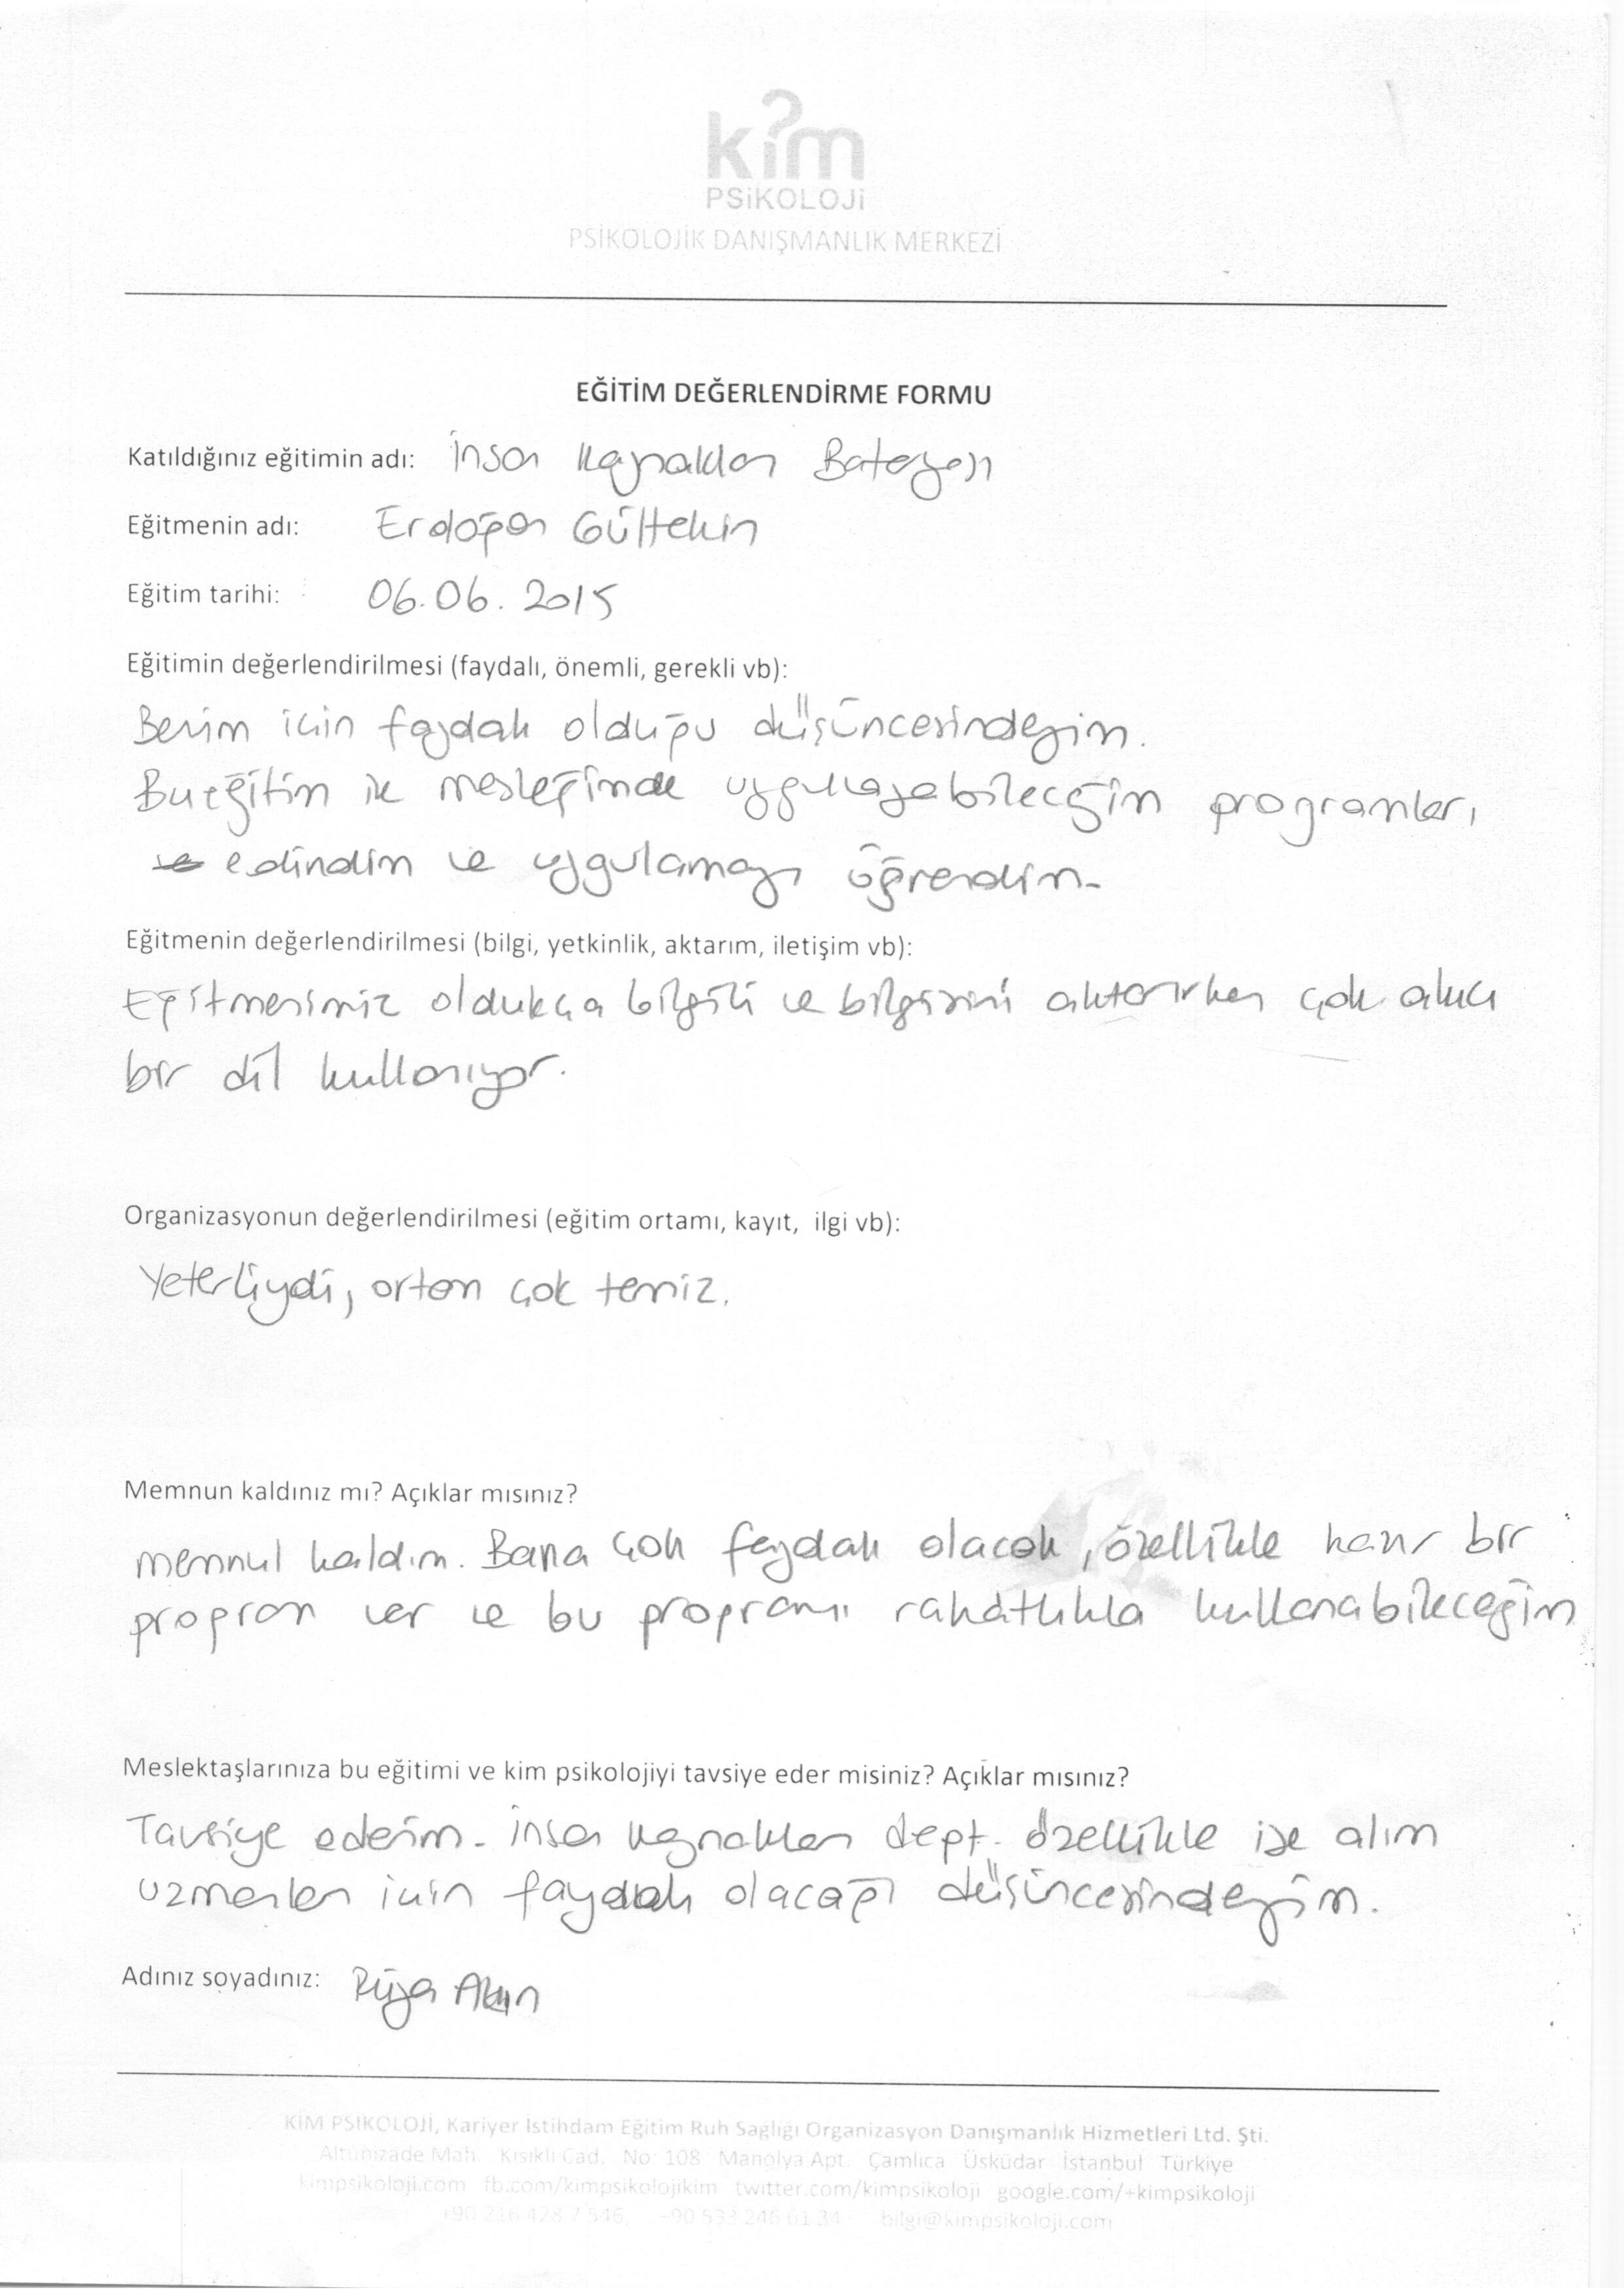 kim
PSİKOLOJİ
PSİKOLOJİK DANIŞMANLIK MERKEZİ
EĞİTİM DEĞERLENDİRME FORMU
Katıldığınız eğitimin adı: İnsan Kaynakları Bataryası
Eğitmenin adı: Erdoğan Gültekin
Eğitim tarihi: 06.06.2015
Eğitimin değerlendirilmesi (faydalı, önemli, gerekli vb):
Benim için faydalı olduğu düşüncesindeyim.
Bu eğitim ile mesleğimde uygulayabileceğim programları
edindim ve uygulamayı öğrendim.
Eğitmenin değerlendirilmesi (bilgi, yetkinlik, aktarım, iletişim vb):
Eğitmenimiz oldukça bilgili ve bilgisini aktarırken çok akıcı
bir dil kullanıyor.
Organizasyonun değerlendirilmesi (eğitim ortamı, kayıt, ilgi vb):
Yeterliydi, ortam çok temiz.
Memnun kaldınız mı? Açıklar mısınız?
memnul kaldım. Bana çok faydalı olacak, özellikle hazır bir
program var ve bu programı rahatlıkla kullanabileceğim
Meslektaşlarınıza bu eğitimi ve kim psikolojiyi tavsiye eder misiniz? Açıklar mısınız?
Tavsiye ederim. İnsan kaynakları dept. özellikle işe alım
uzmanları için faydalı olacağı düşüncesindeyim.
Adınız soyadınız: Rüya Akın
KİM PSİKOLOJİ, Kariyer İstihdam Eğitim Ruh Sağlığı Organizasyon Danışmanlık Hizmetleri Ltd. Şti.
Altunizade Mah. Kısıklı Cad. No: 108 Manolya Apt. Çamlıca Üsküdar İstanbul Türkiye
kimpsikoloji.com fb.com/kimpsikolojikim twitter.com/kimpsikoloji google.com/+kimpsikoloji
+90 216 428 7 546, +90 533 246 61 34 bilgi@kimpsikoloji.com